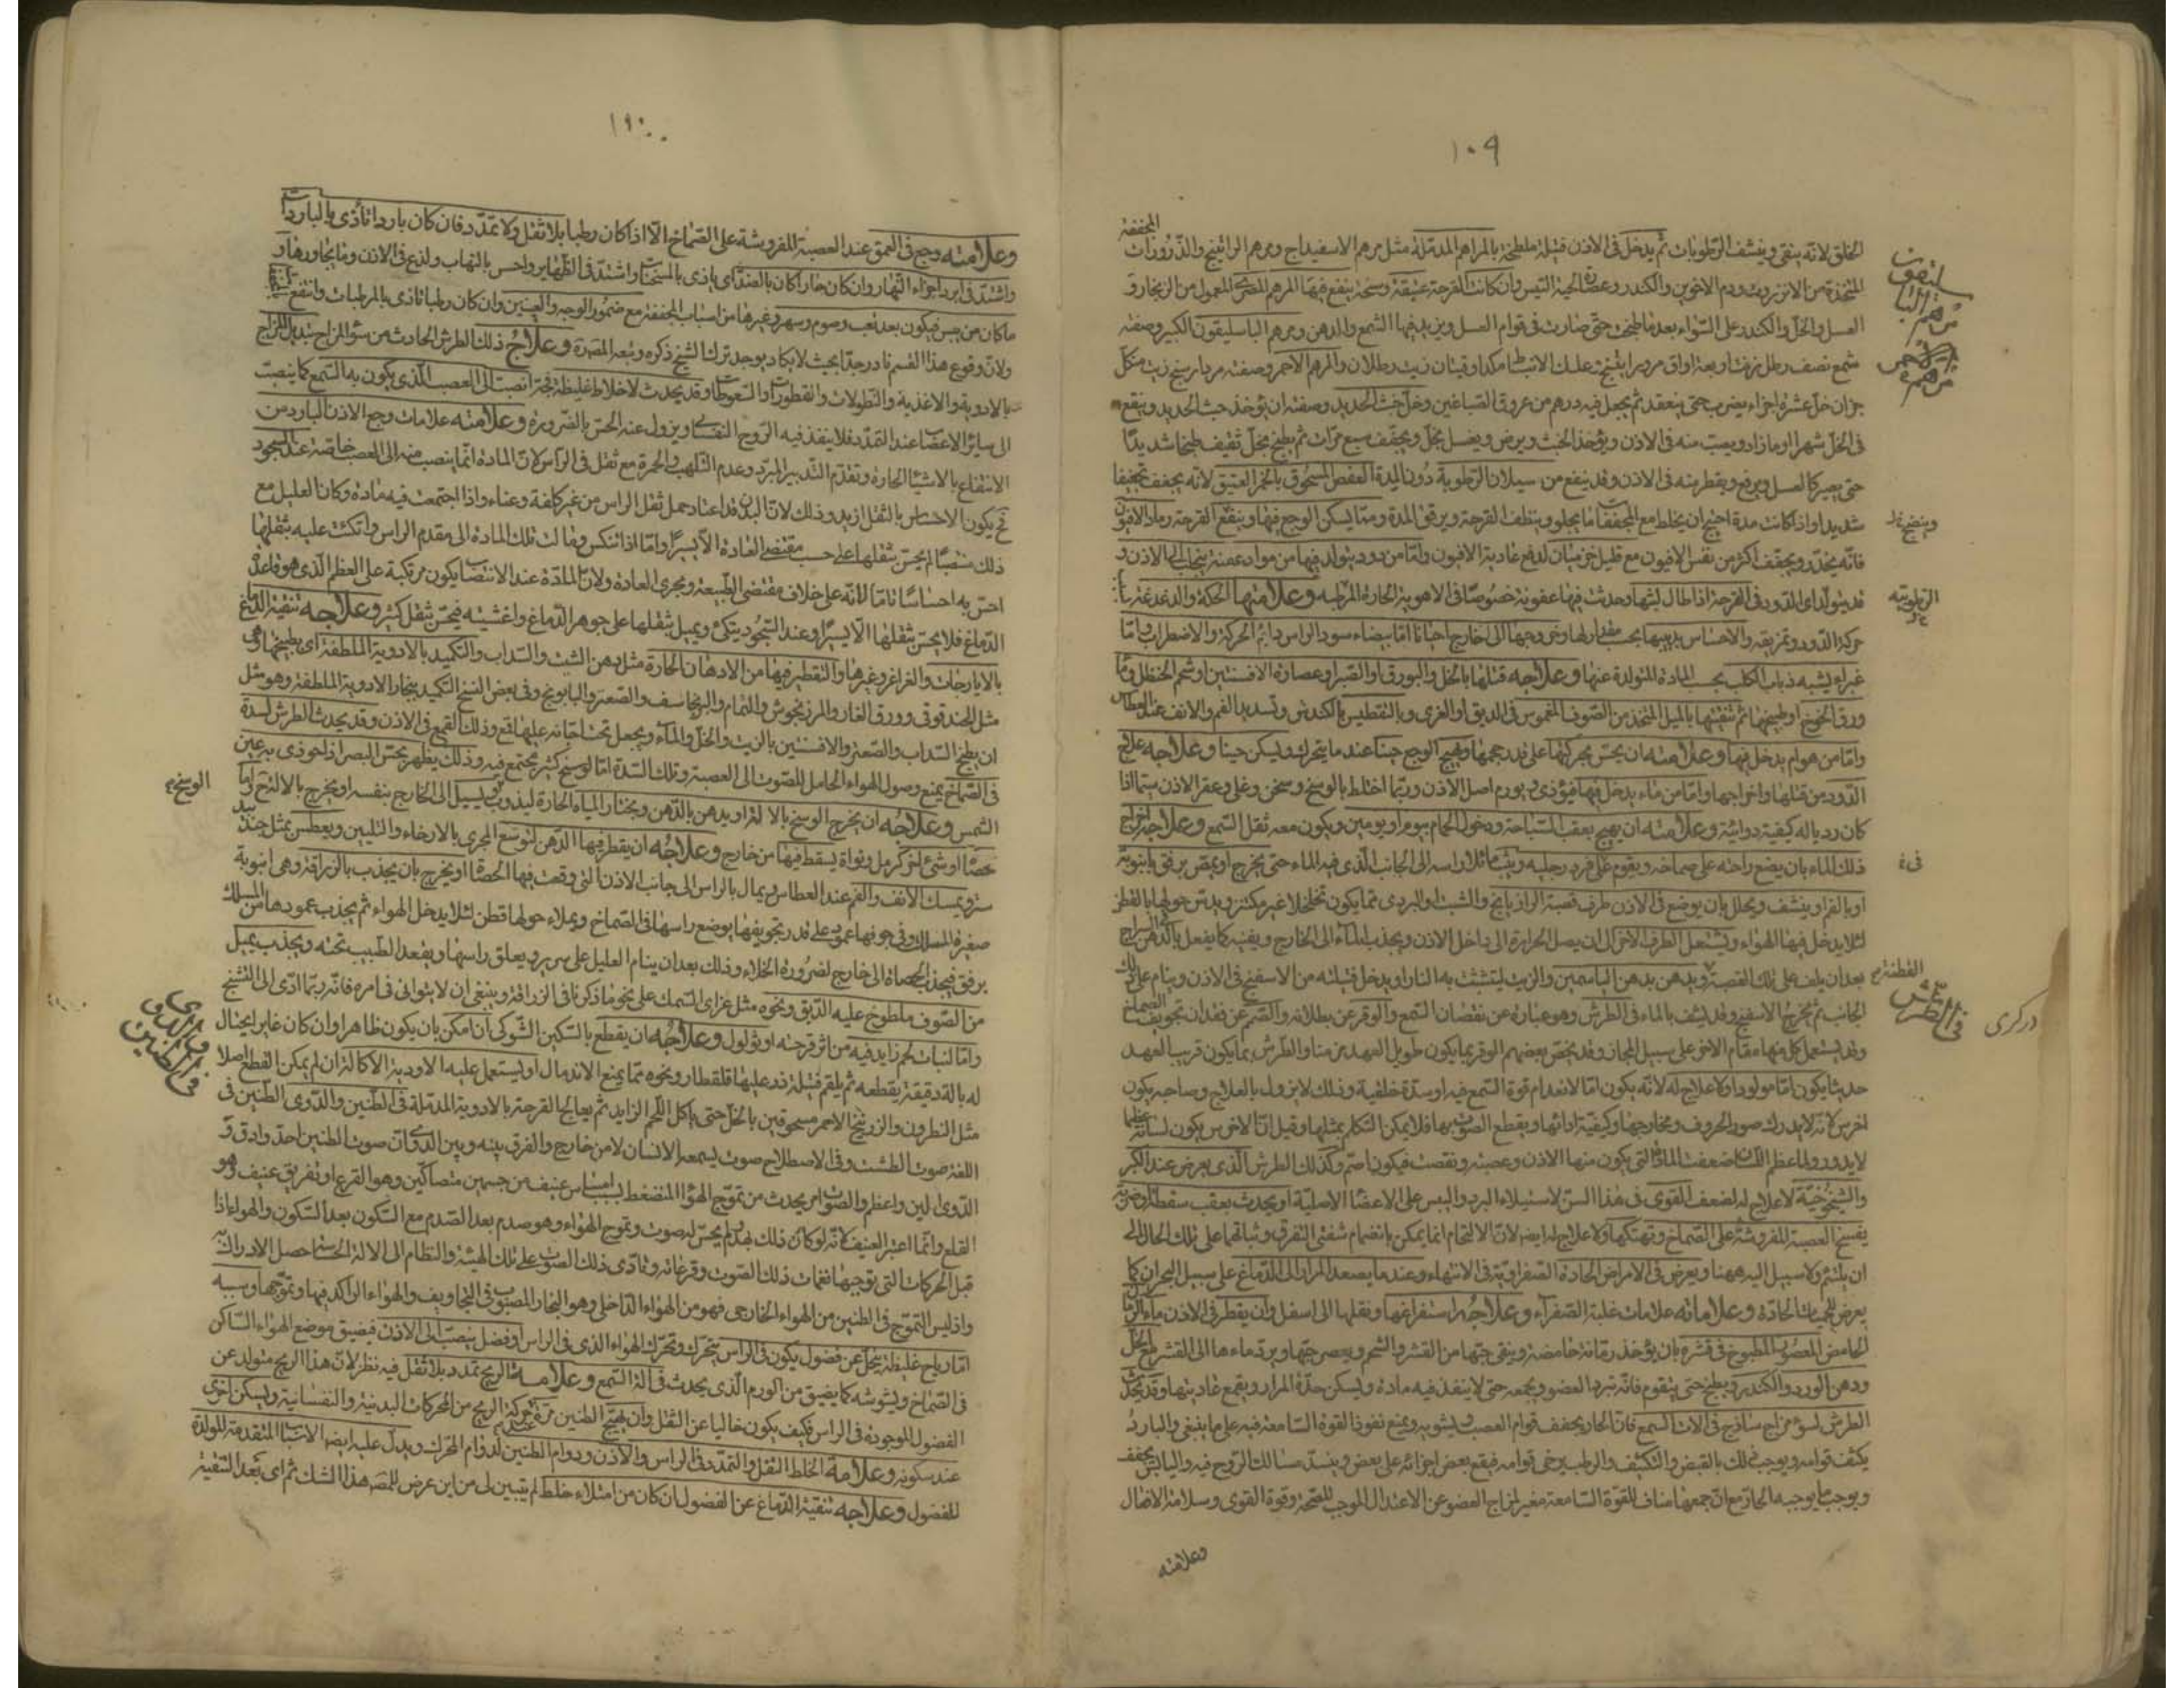 ١٠٩
المجففة
الخلق لانه ينقى وينشف الرطوبات ثم يدخل فى الاذن فتيلة ملطخة بالمراهم المدملة مثل مرهم الاسفيداج ومرهم الراتينج والذرورات
المتخذة من الانزروت ودم الاخوين والكندر وعصارة لحية التيس وان كانت القرحة عتيقة وسخة ينفع فيها المرهم المصرى المعمول من الزنجار و
العسل والخل والكندر على السواء بعد ما طبخت حتى صارت فى قوام العسل ويزيد فيها الشمع والدهن ومرهم الباسليقون الكبير وصفته
شمع نصف رطل زفت اربعة اواق
والمرهم الاحمر وصفته مرداسنج زيت من كل
جزان خل عشرة اجزاء يضرب حتى ينعقد ثم يجعل فيه درهم من عروق الصباغين وخل خبث الحديد وصفته ان يؤخذ خبث الحديد وينقع
فى الخل شهرا او ما زاد ويصب منه فى الاذن ويؤخذ الخبث ويرض ويغسل بخل ويجفف سبع مرات ثم يطبخ بخل ثقيف طبخا شديدا
حتى يصير كالعسل ويرفع ويقطر منه فى الاذن وقد ينفع من سيلان الرطوبة دون المدة العفص المسحوق بالخمر العتيق لانه يجفف تجفيفا
شديدا واذا كانت مدة احتيج ان يخلط مع المجففات ما يجلو وينظف القرحة ويرقق المدة ومما يسكن الوجع فيها وينفع القرحة رماد الافيون
فانه يخدر ويجفف اكثر من نفس الافيون مع قليل جندبادستر لدفع عادية الافيون واما من دود يتولد فيها من مواد عفنة ينجلب الى الاذن و
قد يتولد اى الدود فى القرحة اذا طال لبثها وحدث فيها عفونة خصوصا فى الاهوية الحارة الرطبة وعلامتها الحكة والدغدغة
حركة الدود وتمزيقه والاحساس بدبيبها بحسب مقدارها وخروجها الى خارج احيانا اما بيضاء سود الراس دايم الحركة والاضطراب واما
غبراء يشبه ذباب الكلب بحسب المادة المتولدة عنها وعلاجه قتلها بالخل والبورق او الصبر او عصارة الافسنتين او شحم الحنظل وماء
ورق الخوخ او طبيخها ثم تنقيتها بالميل المتخذ من الصوف المغموس فى الدبق او الغرى وبالتعطيس بالكندش وتسديد الفم والانف عند العطاس
واما من هوام يدخل فيها وعلامته ان يحس بحركتها على قدر حجمها ويهيج الوجع حينا عند ما يتحرك ويسكن حينا وعلاجه علاج
الدود من قتلها واخراجها واما من ماء يدخل فيها فيؤذى ويورم اصل الاذن وربما اختلط بالوسخ وسخن وغلى وعقر الاذن سيما اذا
كان رديا له كيفية دوائية وعلامته ان يهيج بعقب السباحة ودخول الحمام بيوم او يومين ويكون معه ثقل السمع وعلاجه اخراج
ذلك الماء بان يضع راحته على صماخه ويقوم على فرد رجليه ويثب مائلا براسه الى الجانب الذى فيه الماء حتى يخرج او يمص برفق بانبوبة
او بالفم او ينشف ويحلل بان يوضع فى الاذن طرف قصبة الرازيانج والشبث او البردى مما يكون متخلخلا غير مكتنز ويدس حولها بالقطن
لئلا يدخل فيها الهواء ويشتعل الطرف الاخر الى ان يصل الحرارة الى داخل الاذن ويجذب الماء الى الخارج ويفنيه كما يفعل بالدهن السراج
بعد ان يلف على تلك القصبة ويدهن بدهن الياسمين والزيت ليتشبث به النار او يدخل فتيلة من الاسفنج فى الاذن وينام على ذلك
الجانب ثم يخرج الاسفنج وقد نشف بالماء فى الطرش وهو عبارة عن نقصان السمع والوقر عن بطلانه والصمم عن فقدان تجويف الصماخ
وقد يستعمل كل منها مقام الاخر على سبيل المجاز وقد يخص بعضهم الوقر بما يكون طويل العهد من منا والطرش بما يكون قريب العهد
حدثا يكون اما مولودا ولا علاج له لانه يكون اما لانعدام قوة السمع فيه او سدة خلقية وذلك لا يزول بالعلاج وصاحبه يكون
اخرس لانه لا يدرك صور الحروف ومخارجها وكيفية ادائها ويقطع الصوت بها فلا يمكن التكلم بمثلها وقيل ان الاخرس يكون لسانه عظيما
لا يدور ولما عظم اللسان ضعفت المادة التى يكون منها الاذن وعصبته ونقصت فيكون اصم وكذلك الطرش الذى يعرض عند الكبر
والشيخوخية لا علاج له لضعف القوى فى هذا السن لاستيلاء البرد واليبس على الاعضاء الاصلية او يحدث بعقب سقطة او ضربة
يفسخ العصبة المفروشة على الصماخ وتهتكها ولا علاج له ايضا لان الالتحام انما يمكن بانضمام شفتى التفرق وثباتهما على تلك الحال الى
ان يلتئم ولا سبيل اليه ههنا ويعرض فى الامراض الحادة الصفراوية فى الانتهاء وعند ما يصعد المرار الى الدماغ على سبيل البحران كما
يعرض للحميات الحادة وعلاماته علامات غلبة الصفراء وعلاجه استفراغها ونقلها الى اسفل وان يقطر فى الاذن ماء الرمان
الحامض المعصور المطبوخ فى قشره بان يؤخذ رمانة حامضة وينقى حبها من القشر والشحم ويعصر حبها ويرد ماءها الى القشر مع الخل
ودهن الورد والكندر ويطبخ حتى يتقوم فانه تبرد العضو ويجمعه حتى لا ينفذ فيه مادة ويسكن حدة المرار ويقمع غاديتها وقد يحدث
الطرش لسوء مزاج ساذج فى الات السمع فان الحار يجفف قوام العصب ويشويه ويمنع نفوذ القوة السامعة فيه على ما ينبغى والبارد
يكثف قوامه ويوجب ذلك بالقبض والتكثيف والرطب يرخى قوامه فيقع بعض اجزائه على بعض وينسد مسالك الروح فيه واليابس يجفف
ويوجب ما يوجبه الحار مع ان جمعها مناف للقوة السامعة مغير لمزاج العضو عن الاعتدال الموجب للصحة وقوة القوى وسلامة الافعال
وعلامته
مرهم
الرطوبة
فىء
القطنة
فى الطرش
دركرى
وعلامته وجع فى العمق عند العصبة المفروشة على الصماخ الا اذا كان رطبا بلا ثقل ولا تمدد فان كان باردا تأذى بالباردات
واشتد فى ابرد اجزاء النهار وان كان حارا كان بالضد اى يتاذى بالمسخنات واشتد فى الظهاير واحس بالتهاب ولذع فى الاذن وما يجاورها و
ما كان من يبس فيكون بعد تعب وصوم وسهر وغيرها من اسباب المجففة مع ضمور الوجه والعينين وان كان رطبا تاذى بالمرطبات وانتفع
ولان وقوع هذا القسم نادر جدا بحيث لا يكاد يوجد ترك الشيخ ذكره وتبعه المص وعلاج ذلك الطرش الحادث من سؤ المزاج تبديل المزاج
بالادوية والاغذية والنطولات والقطورات والسعوطات وقد يحدث لاخلاط غليظة فجة انصبت الى العصب الذى يكون به السمع كما ينصب
الى سائر الاعصاب عند التمدد فلا ينفذ فيه الروح النفسانى ويزول عنه الحس بالضرورة وعلامته علامات وجع الاذن البارد من
الانتفاع بالاشياء الحارة وتقدم التدبير المبرد وعدم التلهب والحمرة مع ثقل فى الراس لان المادة انما ينصب منه الى العصب خاصة عند السجود
فح يكون الاحساس بالثقل ازيد وذلك لان البدن قد اعتاد حمل ثقل الراس من غير كلفة وعناء واذا اجتمعت فيه مادة وكان العليل مع
ذلك منتصبا لم يحس بثقلها على حسب مقتضى العادة الا يسيرا واما اذا تنكس ومالت تلك المادة الى مقدم الراس واتكئت عليه بثقلها
احس به احساسا تاما لانه على خلاف مقتضى الطبيعة ومجرى العادة ولان المادة عند الانتصاب يكون مرتكبة على العظم الذى هو قاعدة
الدماغ فلا يحس بثقلها الا يسيرا وعند السجود يتكئ ويميل بثقلها على جوهر الدماغ واغشيته فيحس ثقل كثير وعلاجه تنقية الدماغ
بالايارجات والغراغر وغيرها والتقطير فيها من الادهان الحارة مثل دهن الشبث والسداب والتكميد بالادوية الملطفة اى بطبيخها وهى
مثل الحندقوقى وورق الغار والمرزنجوش والنمام والبرنجاسف والصعتر والبابونج وفى بعض النسخ التكميد ببخار الادوية الملطفة وهو مثل
ان يطبخ السداب والصعتر والافسنتين بالزيت والخل والماء ويجعل تحت اجانة عليها قمع وذلك القمع فى الاذن وقد يحدث الطرش لسدة
فى الصماخ يمنع وصول الهواء الحامل للصوت الى العصبة وتلك السدة اما لوسخ كثير يجتمع فيه وذلك يظهر بحس البصر اذا حوذى به عين
الشمس وعلاجه ان يخرج الوسخ بالالة او يدهن بالدهن وبخار المياه الحارة ليذوب ويسيل الى الخارج بنفسه او يخرج بالالة واما
حصاة او شئ اخر كرمل ونواة يسقط فيها من خارج وعلاجه ان يقطر فيها الدهن لتوسع المجرى بالارخاء والتليين ويعطس بمثل جند
ويمسك الانف والفم عند العطاس ويمال بالراس الى جانب الاذن التى وقعت فيها الحصاة او يخرج بان يجذب بالزراقة وهى انبوبة
صغيرة المسلك وفى جوفها عمود على قدر تجويفها يوضع راسها فى الصماخ ويملاء حولها قطن لئلا يدخل الهواء ثم يجذب عمودها من المسلك
برفق فيجذب الحصاة الى خارج لضرورة الخلاء وذلك بعد ان ينام العليل على سرير ويعلق راسها ويقعد الطبيب تحته ويجذب بميل
من الصوف ملطوخ عليه الدبق ونحوه مثل غراى السمك على نحو ما ذكرنا فى الزراقة وينبغى ان لا يتوانى فى امره فانه ربما ادى الى التشنج
واما لنبات لحم زايد فيه من اثر قرحته او ثولول وعلاجه ان يقطع بالسكين الشوكى ان امكن بان يكون ظاهرا وان كان غايرا يحتال
له بالة دقيقة يقطعه ثم يلقم فتيلة ذر عليها قلقطار ونحوه مما يمنع الاندمال او يستعمل عليه الادوية الاكالة ان لم يمكن القطع اصلا
مثل النطرون والزرنيخ الاحمر مسحوقين بالخل حتى ياكل اللحم الزايد ثم يعالج القرحة بالادوية المدملة فى الطنين والدوى الطنين فى
اللغة صوت الطشت وفى الاصطلاح صوت يسمعه الانسان لا من خارج والفرق بينه وبين الدوى ان صوت الطنين احد وادق و
الدوى الين واعظم والصوت امر يحدث من تموج الهواء المنضغط بسبب امساس عنيف من جسمين متصاكين وهو القرع او تفريق عنيف وهو
القلع وانما اعتبر العنيف لانه لو كان ذلك بهدو لم يحس له صوت وتموج الهواء وهو صدم بعد الصدم مع السكون بعد السكون والهواء اذا
قبل الحركات التى توجبها نغمات ذلك الصوت وقرعاته وتادى ذلك الصوت على تلك الهيئة والنظام الى الالة الحسية حصل الادراك به
واذ ليس التموج فى الطنين من الهواء الخارجى فهو من الهواء الداخلى وهو البخار المصبوب فى التجاويف والهواء الراكد فيها وتموجها وسببه
اما رياح غليظة يتحلل عن فضول يكون فى الراس يتحرك وتحرك الهواء الذى فى الراس او فضل ينصب الى الاذن فيضيق موضع الهواء الساكن
فى الصماخ ويشوشه كما يضيق من الورم الذى يحدث فى الة السمع وعلامة الريح تمدد بلا ثقل فيه نظر لان هذا الريح متولد عن
الفضول الموجودة فى الراس فكيف يكون خاليا عن الثقل وان يهيج الطنين مرة عند حركة الريح من المحركات البدنية والنفسانية ويسكن اخرى
عند سكونه وعلامة الخلط الثقل والتمدد فى الراس والاذن ودوام الطنين لدوام المحرك ويدل عليه ايضا الاسباب المتقدمة المولدة
للفضول وعلاجه تنقية الدماغ عن الفضول ان كان من امتلاء خلط لم يتبين لى من اين عرض للمص هذا الشك ثم اى بعد التنقية
الوسخ
فى الطنين
والدوى